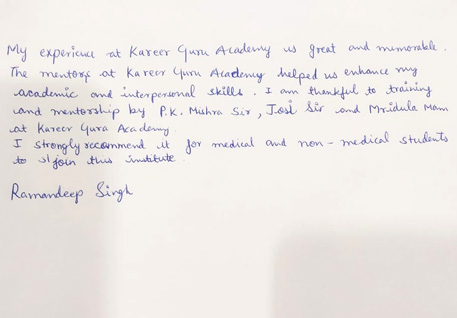 My experience at Kareer Guru Academy is great and memorable.
The mentors at Kareer Guru Academy helped us enhance my
academic and interpersonal skills. I am thankful to training
and mentorship by P.K. Mishra Sir, Josi Sir and Mridula Mam
at Kareer Gura Academy.
I strongly recommend it for medical and non-medical students
to join this institute
Ramandeep Singh